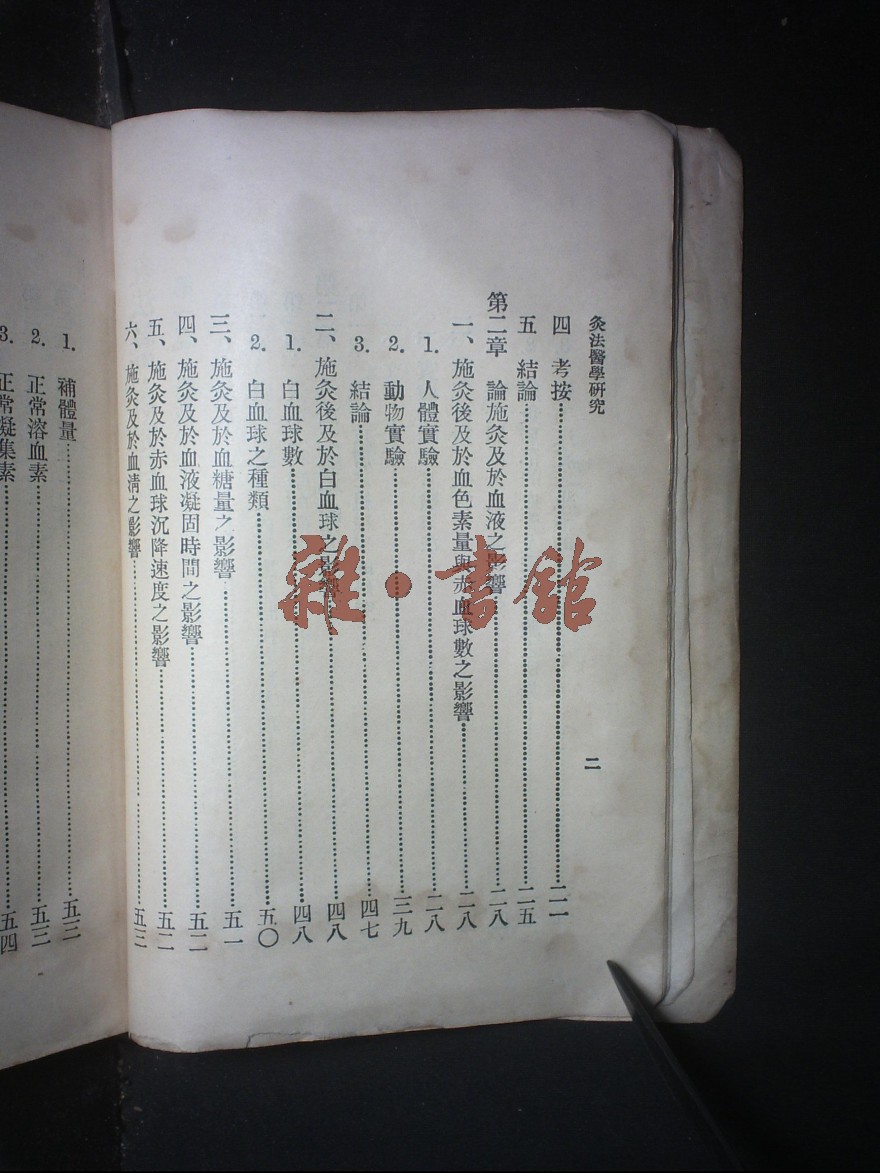 灸法醫學研究
二
四 考按……二一
五 結論……二五
第二章 論施灸及於血液之影響……二八
一、施灸後及於血色素量與赤血球數之影響……二八
1. 人體實驗……二八
2. 動物實驗……三九
3. 結論……四七
二、施灸後及於白血球之影響……四八
1. 白血球數……四八
2. 白血球之種類……五〇
三、施灸及於血糖量之影響……五一
四、施灸及於血液凝固時間之影響……五二
五、施灸及於赤血球沉降速度之影響……五二
六、施灸及於血清之影響……五三
1. 補體量……五三
2. 正常溶血素……五三
3. 正常凝集素……五四
雜·書館